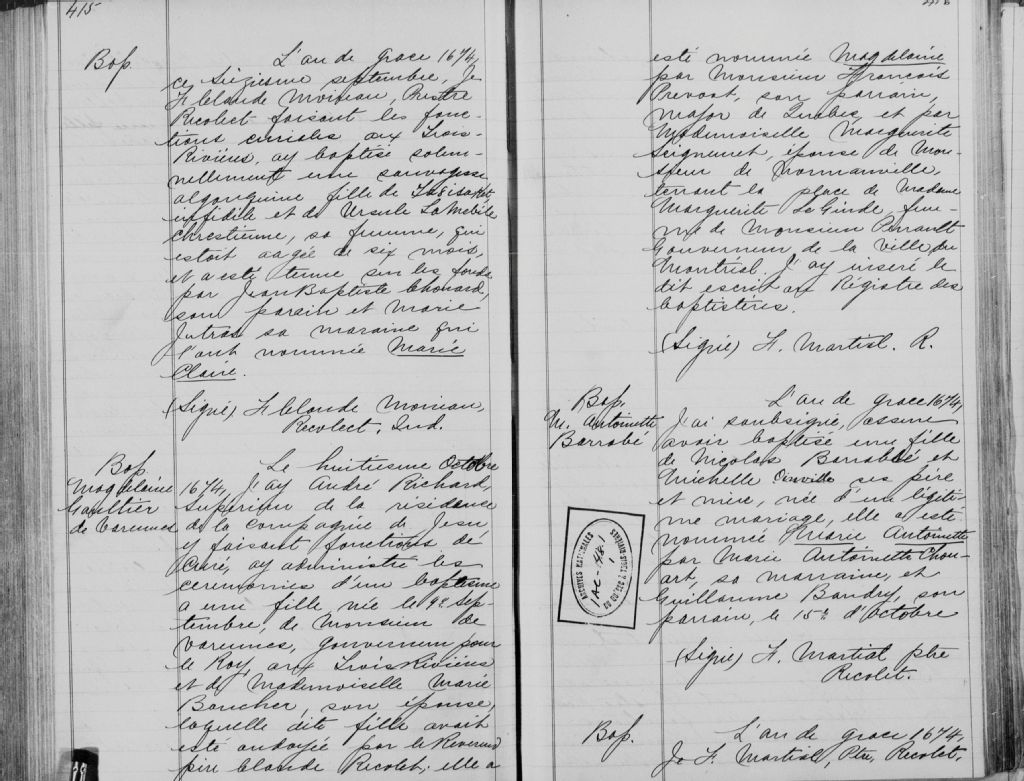 415
Bap.
L'an de grace 1674,
ce Siezieme septembre, Je
F. Claude Moireau, Prestre
Recolect faisant les fonc-
tions curiales aux Trois-
Rivières, ay baptisé solem-
nellement une sauvagesse
algonquine fille de
infidèle et de Ursule La
chrestienne, sa femme, qui
estoit aagée de six mois,
et a esté tenue sur les fonds
par Jean Baptiste Chouard,
son parain et Marie
Jutras sa maraine qui
l'ont nommée Marie
Claire.
(Signé) F. Claude Moireau,
Recolect, Ind.
Bap.
Magdelaine
Gaultier
de Varennes
Le huitiesme Octobre
1674, J'ay André Richard,
Supérieur de la résidence
de la Compagnie de Jesu
y faisant fonctions de
Curé, ay administré les
ceremonies d'un baptesme
a une fille née le 9e sep-
tembre, de Monsieur de
Varennes, gouverneur pour
le Roy, aux Trois Rivières
et de Mademoiselle Marie
Boucher, son épouse,
laquelle dite fille avait
esté ondoyée par le Reverend
père Claude Recolet; elle a
esté nommée Magdelaine
par Monsieur Francois
Prevost, son parrain,
major de Quebec et par
Mademoiselle Marguerite
Seigneuret, épouse de Mon-
sieur de Normanville,
tenant la place de Madame
Marguerite Le Ginde, fem-
me de Monsieur Perrault
Gouverneur de la Ville de
Montréal. J'ay inseré le
dit escrit au Régistre des
baptistères.
(Signé) F. Martial. R.
Bap.
M. Antoinette
Barrabé
L'an de grace 1674,
J'ai soubsigné, assure
avoir baptisé une fille
de Nicolas Barrabé et
Michelle Ouville ses père
et mère, née d'un légiti-
me mariage, elle a esté
nommée Marie Antoinette
par Marie Antoinette Chou-
art, sa marraine, et
Guillaume Baudry, son
parrain, le 15e d'Octobre
(Signé) F. Martial ptre
Recolet.
ARCHIVES NATIONALES
Bap.
L'an de grace 1674,
Je F. Martial, Ptre, Recolet,